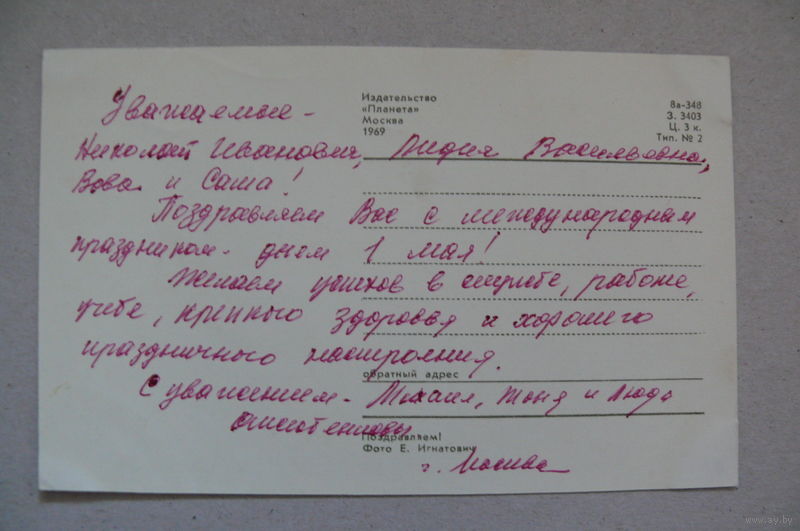 Издательство
«Планета»
Москва
1969
8а-348
З. 3403
Ц. 3 к.
Тип. № 2
Уважаемые -
Николай Иванович, Лидия Васильевна,
Вова и Саша!
Поздравляем Вас с международным
праздником - днем 1 мая!
Желаем успехов в службе, работе,
учебе, крепкого здоровья и хорошего
праздничного настроения.
обратный адрес
С уважением - Михаил, Тоня и Люда
Поздравляем!
Фото Е. Игнатович
г. Москва
www.ay.by